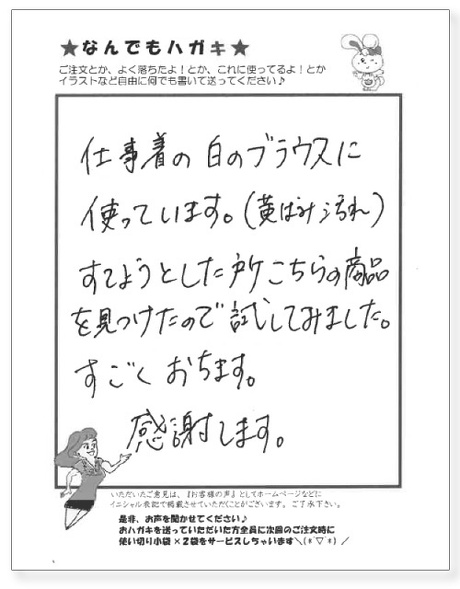 ★なんでもハガキ★
ご注文とか、よく落ちたよ!とか、これに使ってるよ!とか
イラストなど自由に何でも書いて送ってください♪
仕事着の白のブラウスに
使っています。(黄ばみ汚れ)
すてようとした所こちらの商品
を見つけたので試してみました。
すごくおちます。
感謝します。
いただいたご意見は、『お客様の声』としてホームページなどに
イニシャル表記で掲載させていただことがございます。ご了承下さい。
是非、お声を聞かせてください♪
おハガキを送っていただいた方全員に次回のご注文時に
使い切り小袋×2袋をサービスしちゃいます＼(*´▽`*)／